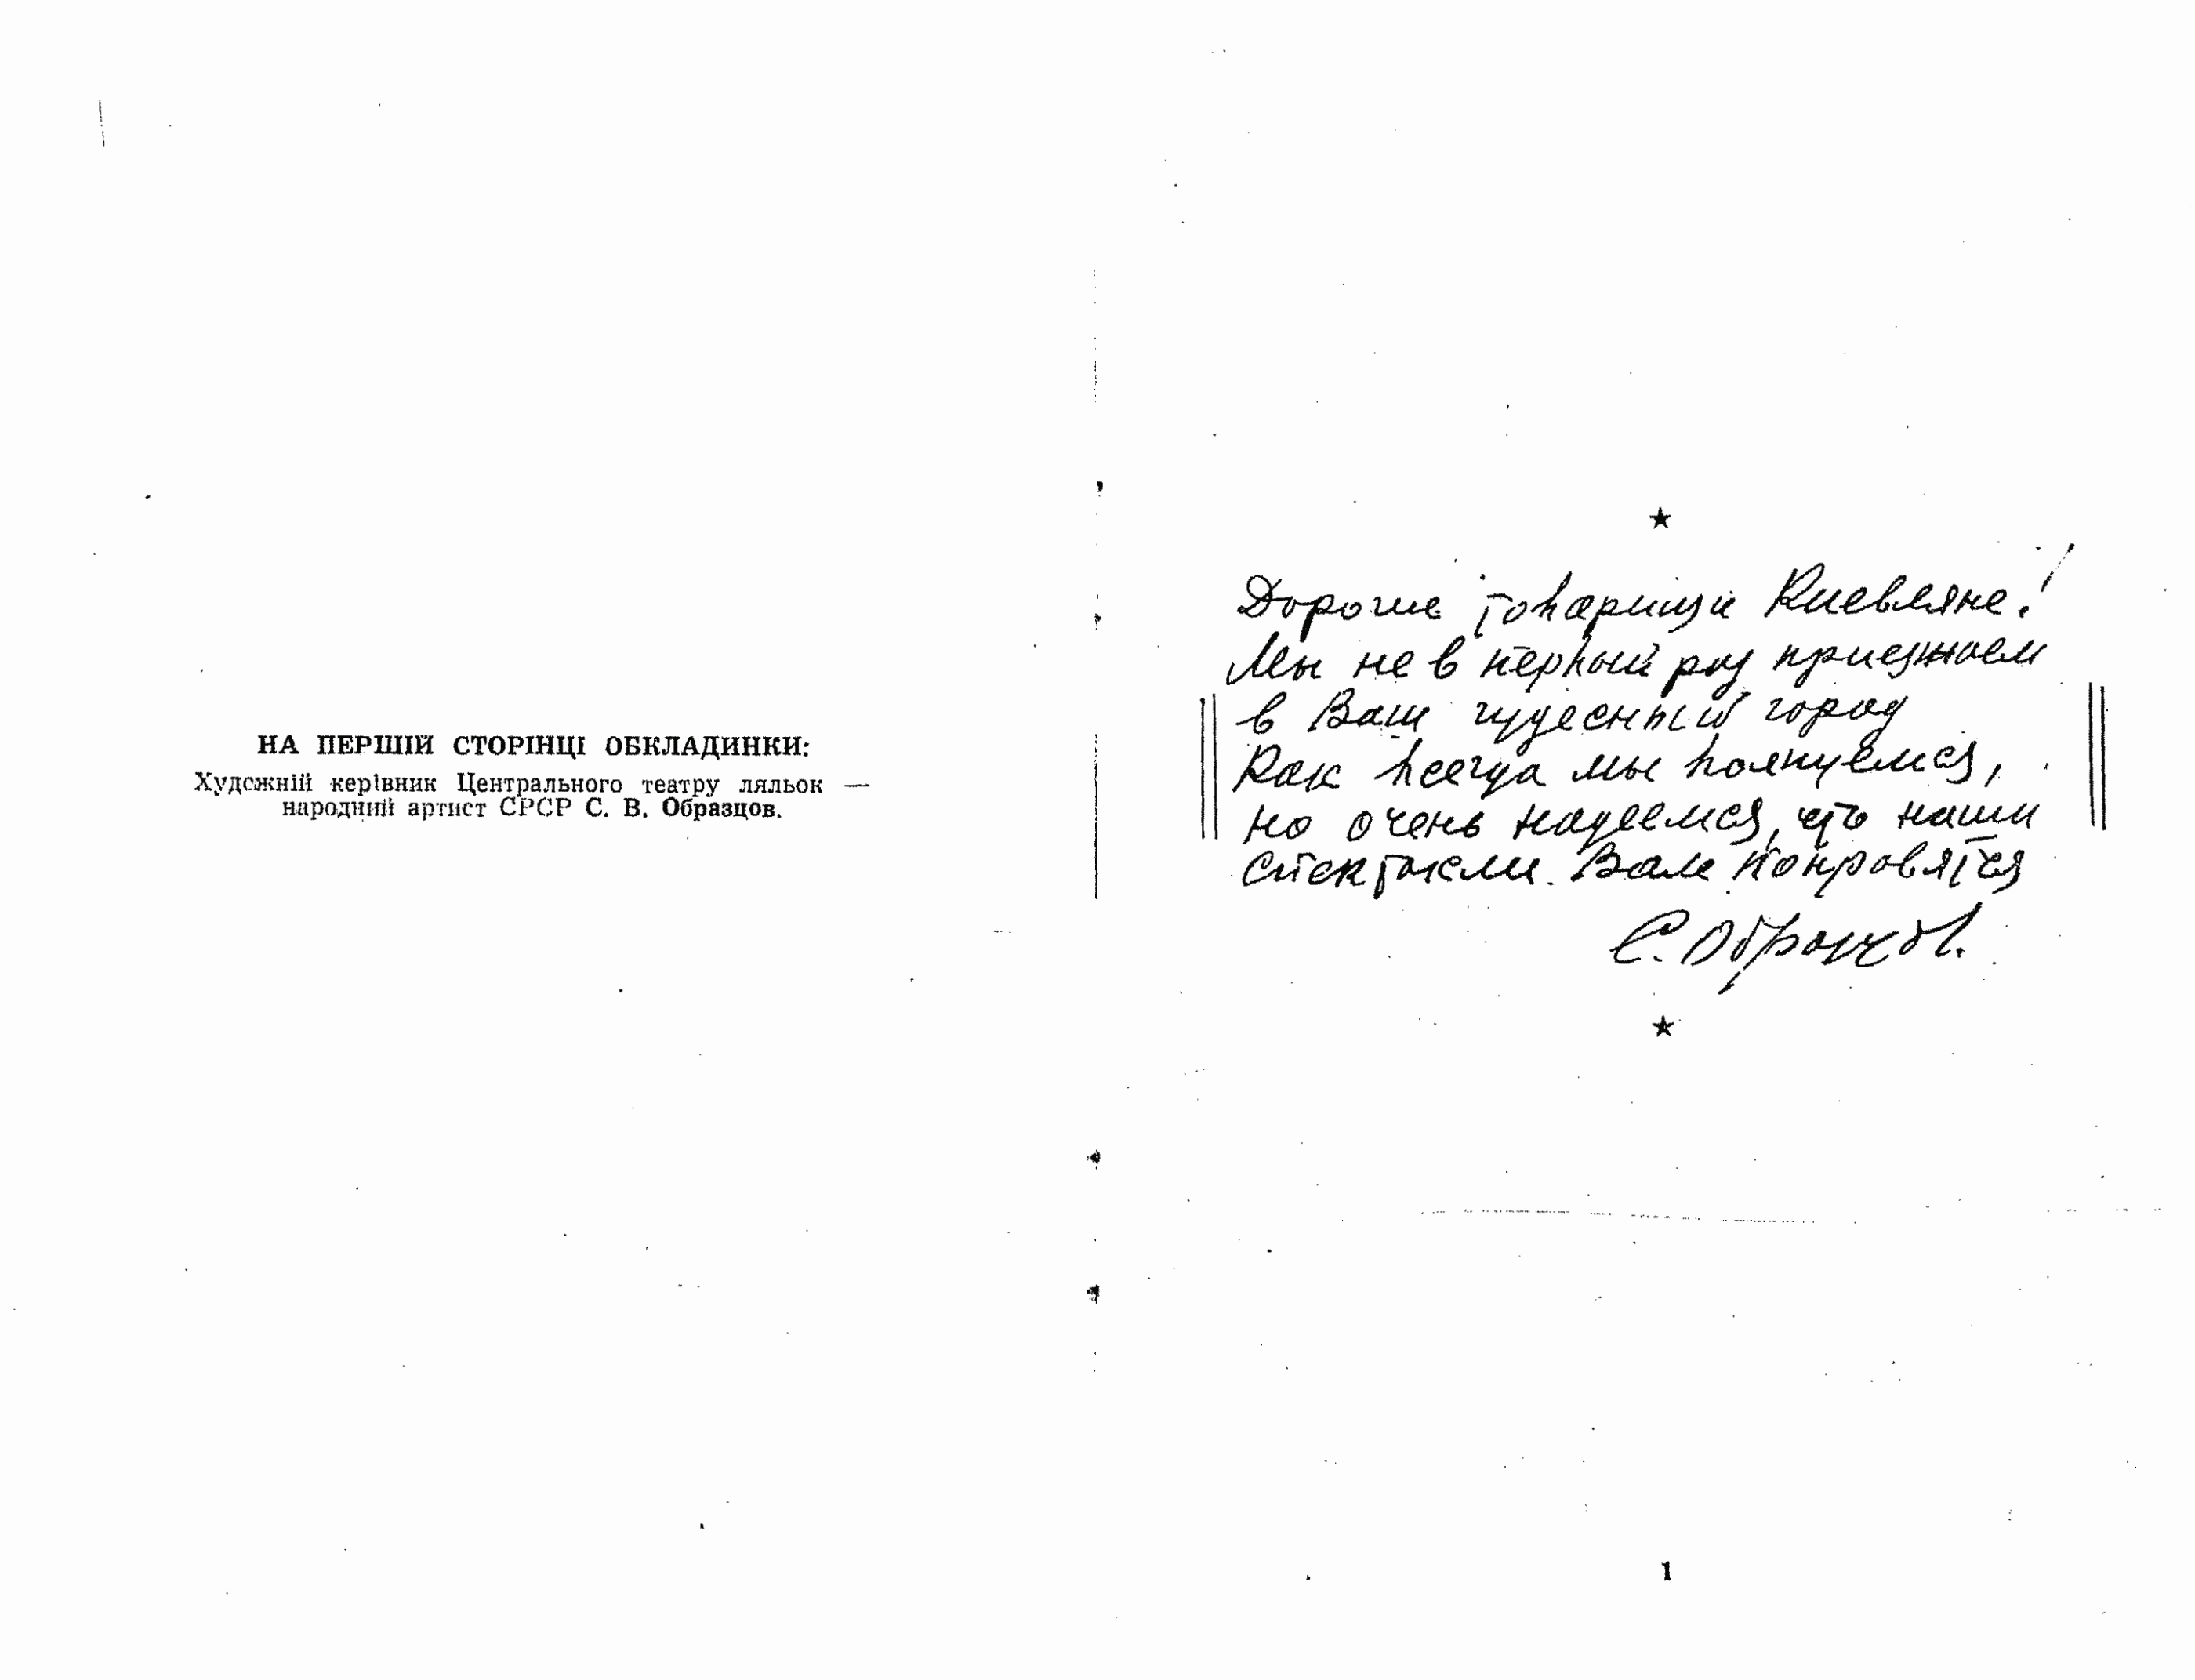 НА ПЕРШІЙ СТОРІНЦІ ОБКЛАДИНКИ:
Художній керівник Центрального театру ляльок —
народний артист СРСР С. В. Образцов.
★
Дорогие товарищи Киевляне!
Мы не в первый раз приезжаем
в Ваш чудесный город
Как всегда мы волнуемся,
но очень надеемся, что наши
спектакли Вам понравятся
С. Образцов.
★
1